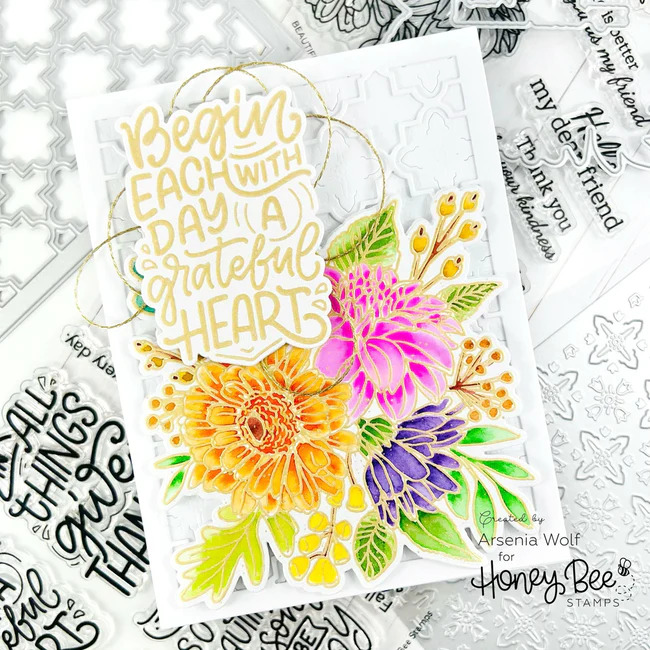 Begin
EACH WITH
DAY A
grateful
HEART
BEAUTIFUL
is better
my friend
Hello
my dear friend
Thank you
your kindness
every day.
ALL
THINGS
give
THAN
grateful
HEART
BE
Bee Stamps
Created by
Arsenia Wolf
for
Honey Bee
STAMPS